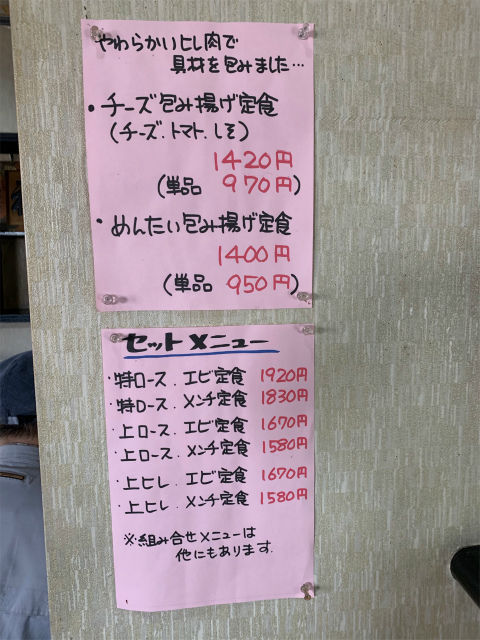 やわらかいヒレ肉で
具材を包みました…
・チーズ包み揚げ定食
(チーズ.トマト.しそ)
1420円
(単品 970円)
・めんたい包み揚げ定食
1400円
(単品 950円)
セットメニュー
・特ロース.エビ定食 1920円
・特ロース.メンチ定食 1830円
・上ロース.エビ定食 1670円
・上ロース.メンチ定食 1580円
・上ヒレ.エビ定食 1670円
・上ヒレ.メンチ定食 1580円
※組み合せメニューは
他にもあります.